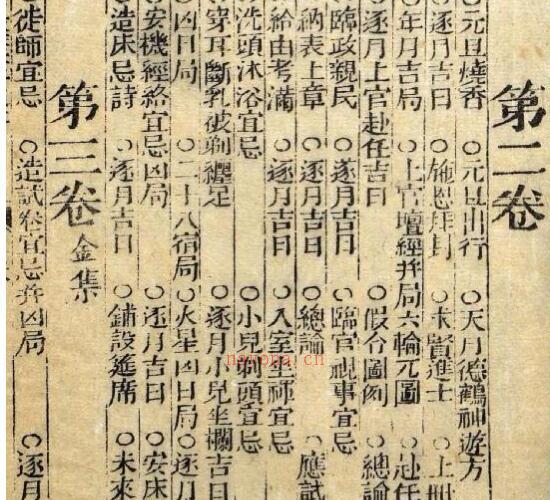 第二卷
○元旦燒香 ○元旦出行 ○天月德鶴神遊方
○逐月吉日 ○施恩拜封 ○求賢進士 ○上
○年月吉局 ○上官壇經并局六輪元圖 ○赴任
○逐月上官赴任吉日 ○假合圖例 ○總論
○臨政親民 ○逐月吉日 ○臨官視事宜忌
○納表上章 ○逐月吉日 ○總論 ○應試
○給由考滿 ○逐月吉日 ○入室坐師宜忌
○洗頭沐浴宜忌 ○小兒剃頭宜忌
○穿耳斷乳破剃纏足 ○逐月小兒坐欄吉日
○凶日局 ○二十八宿局 ○火星凶日局 ○逐月
○安機經絡宜忌凶局 ○逐月吉日 ○安床
○造床忌詩 ○逐月吉日 ○鋪設筵席 ○未來
第三卷 金集
徒師宜忌 ○造試卷宜忌并凶局 ○逐月
nayona.cn